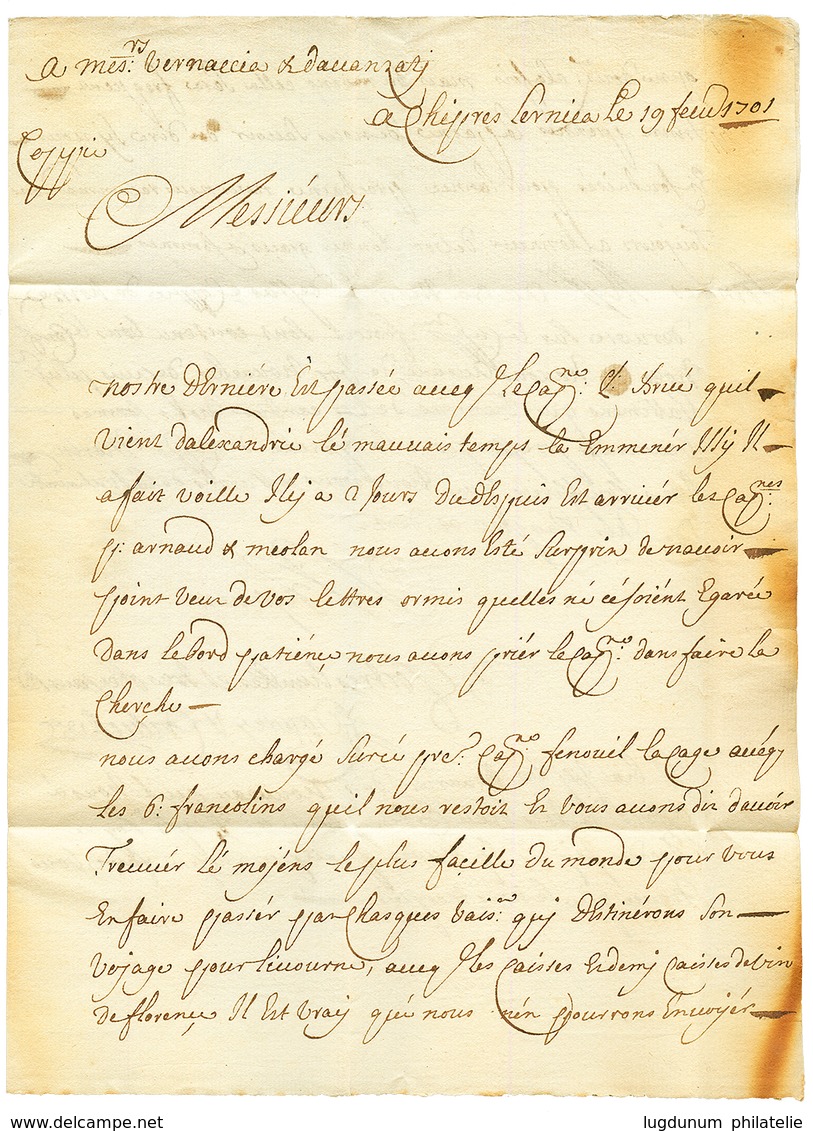 A mes.rs Vernaccia & davanzatj
a Chipres Lernica le 19 feud 1701
Coppie
Messieurs
nostre dErniére Est passée auecq le Cap.ne P. Brué quil
vient dalexandrie lé mauuais temps la Emmenér Issÿ Il
a fait voille Ilÿ a 2 Jours Du dEspuis Est arriuér les Cap.nes
p. arnaud & meolan nous auons Esté Surprin de nauoir
point veux de vos lettres ormis quelles né cé soiént Egarée
Dans le bord patiénce nous auons priér le Cap.ne dans faire la
Cherche
nous auons chargé Sur cé pre.t Cap.ne fenouil la Cage auécq
les 6. francolins quil nous restoit Et vous auons dit dauoir
Treuuér lé mojéns le plus façille du monde pour vous
En faire passér par Chasques vais. quj dEstinérons Son
voyage pour liuourne, auecq les Caisses Et demj Caisses de vin
de florençe Il Est vraÿ qué nous nén pourrons Enuoÿér
a-delcampe.net
lugdunum philatelie